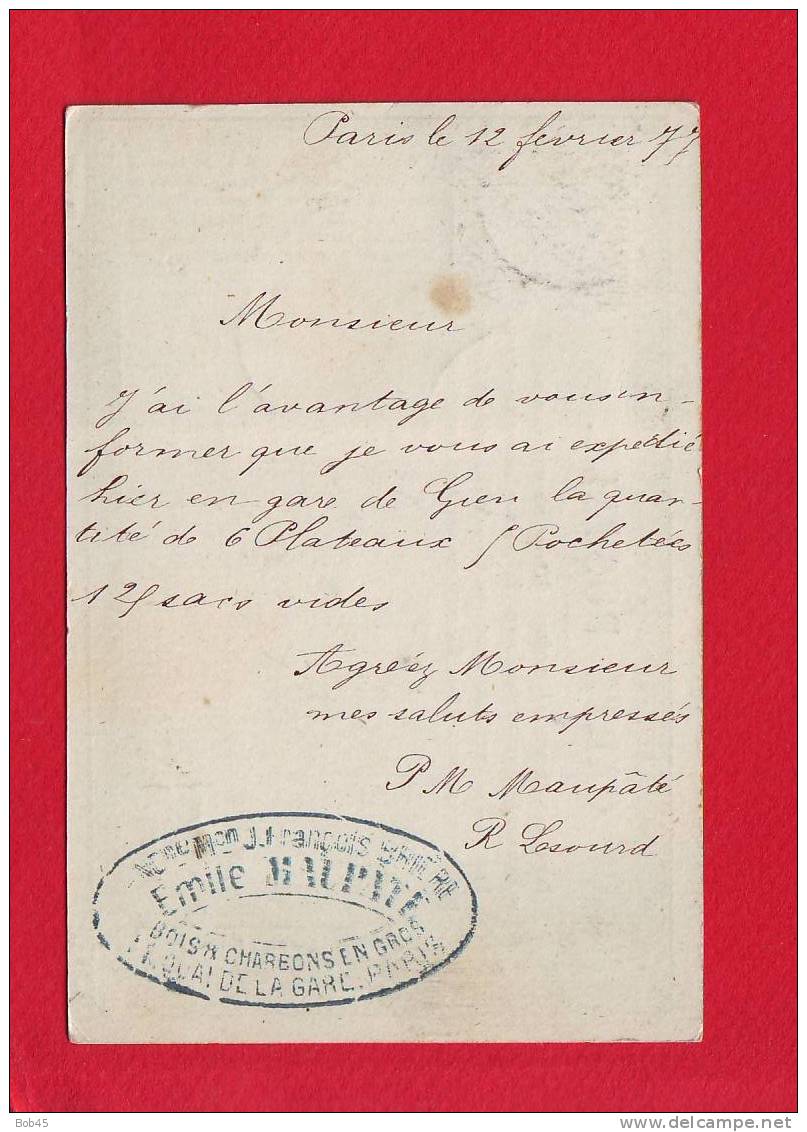 Paris le 12 février 77
Monsieur
J'ai l'avantage de vous in-
former que je vous ai expedié
hier en gare de Gien la quan-
tité de 6 Plateaux 5 Pochetées
125 sacs vides
Agréez Monsieur
mes saluts empressés
P M Maupâté
R Lesourd
Ncne Mon J. François
Emile MAUPATÉ
BOIS & CHARBONS EN GROS
QUAI DE LA GARE. PARIS
Bob45
http://www.delcampe.net